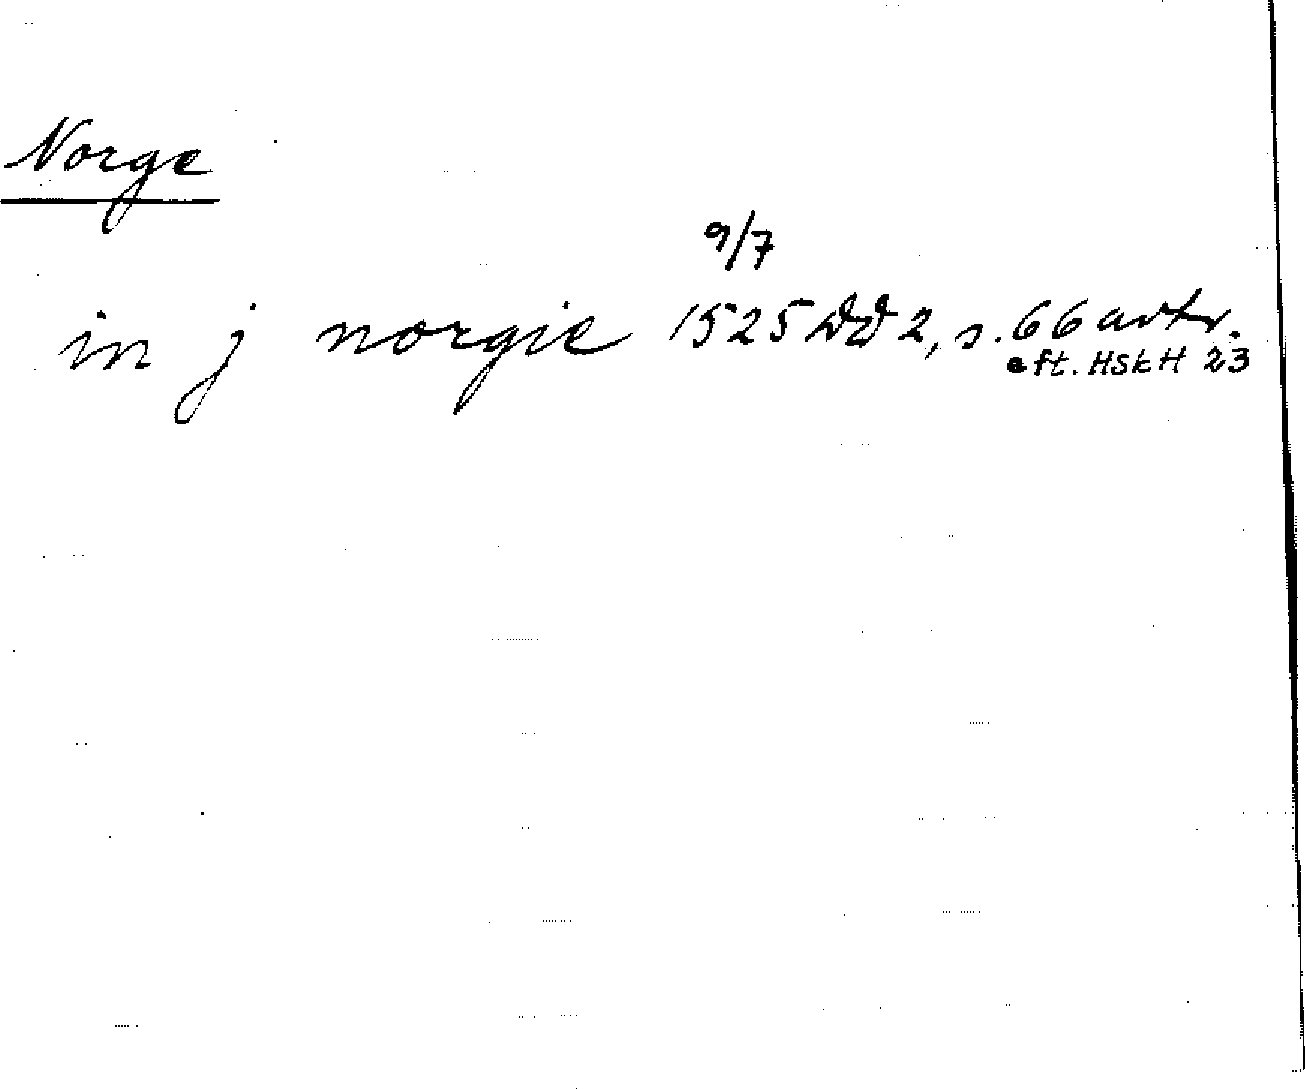 Norge
9/7
in j norgie 1525 DD 2, s. 66 avtr.
eft. HSkH 23